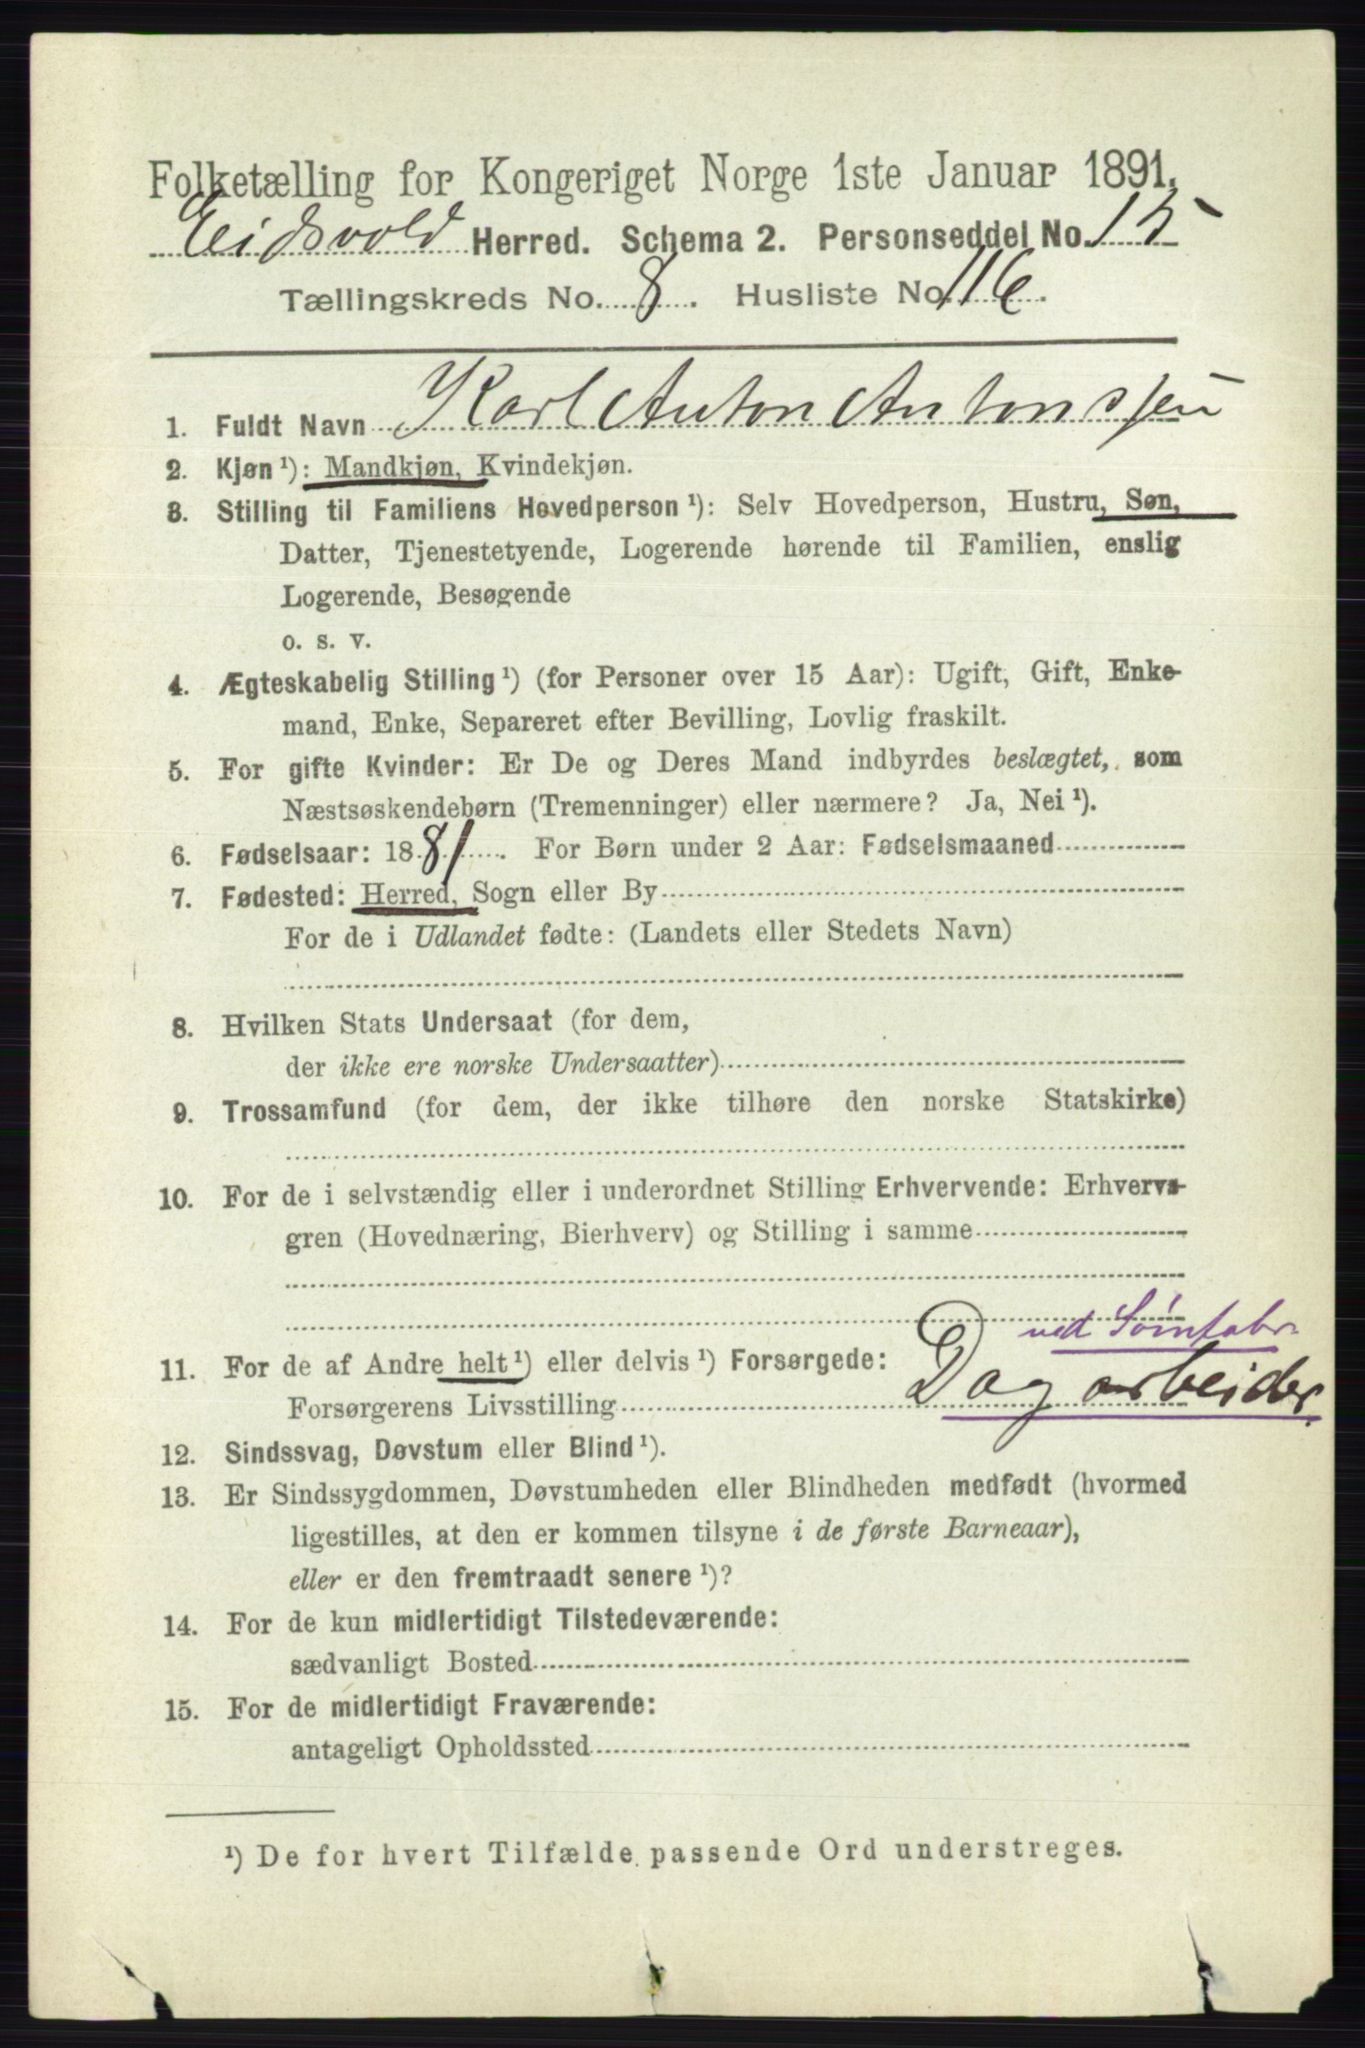 Folketælling for Kongeriget Norge 1ste Januar 1891.
Eidsvold Herred. Schema 2. Personseddel No. 15
Tællingskreds No. 8. Husliste No. 116.
1. Fuldt Navn Karl Anton Antonssen
2. Kjøn ¹): Mandkjøn, Kvindekjøn.
3. Stilling til Familiens Hovedperson ¹): Selv Hovedperson, Hustru, Søn,
Datter, Tjenestetyende, Logerende hørende til Familien, enslig
Logerende, Besøgende
o. s. v.
4. Ægteskabelig Stilling ¹) (for Personer over 15 Aar): Ugift, Gift, Enke-
mand, Enke, Separeret efter Bevilling, Lovlig fraskilt.
5. For gifte Kvinder: Er De og Deres Mand indbyrdes beslægtet, som
Næstsøskendebørn (Tremenninger) eller nærmere? Ja, Nei ¹).
6. Fødselsaar: 1881. For Børn under 2 Aar: Fødselsmaaned
7. Fødested: Herred, Sogn eller By
For de i Udlandet fødte: (Landets eller Stedets Navn)
8. Hvilken Stats Undersaat (for dem,
der ikke ere norske Undersaatter)
9. Trossamfund (for dem, der ikke tilhøre den norske Statskirke)
10. For de i selvstændig eller i underordnet Stilling Erhvervende: Erhvervs-
gren (Hovednæring, Bierhverv) og Stilling i samme
ved
11. For de af Andre helt ¹) eller delvis ¹) Forsørgede:
Forsørgerens Livsstilling Dagarbeider
12. Sindssvag, Døvstum eller Blind ¹).
13. Er Sindssygdommen, Døvstumheden eller Blindheden medfødt (hvormed
ligestilles, at den er kommen tilsyne i de første Barneaar),
eller er den fremtraadt senere ¹)?
14. For de kun midlertidigt Tilstedeværende:
sædvanligt Bosted
15. For de midlertidigt Fraværende:
antageligt Opholdssted
¹) De for hvert Tilfælde passende Ord understreges.